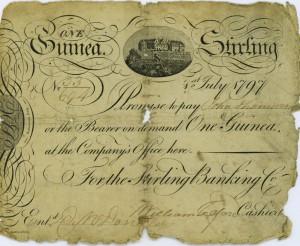 ONE
Guinea. Stirling
No. 1st July 1797
I Promise to pay
or the Bearer on demand One Guinea,
at the Company's Office here.
For the Stirling Banking Co.
Entd. William Cashier